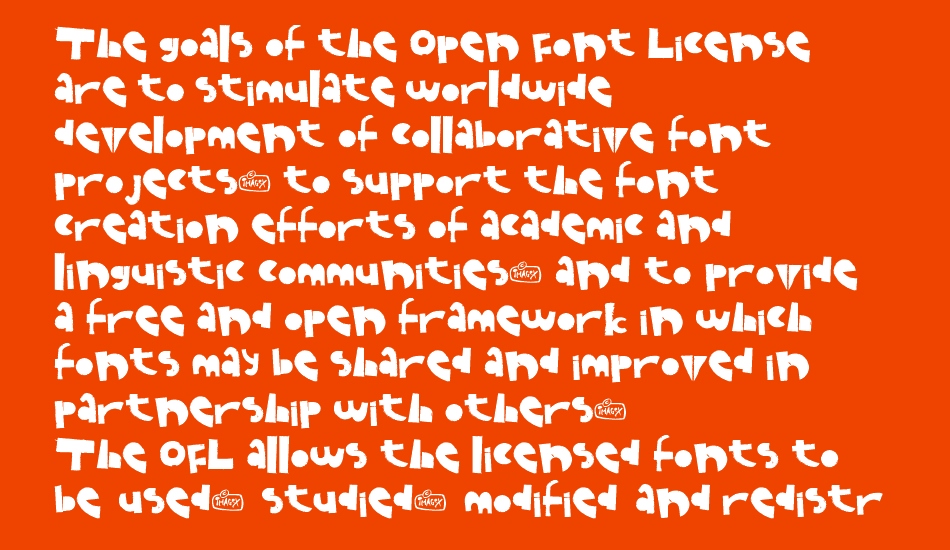 The goals of the Open Font License
are to stimulate worldwide
development of collaborative font
projects to support the font
creation efforts of academic and
linguistic communities and to provide
a free and open framework in which
fonts may be shared and improved in
partnership with others
The OFL allows the licensed fonts to
be used studied modified and redistr